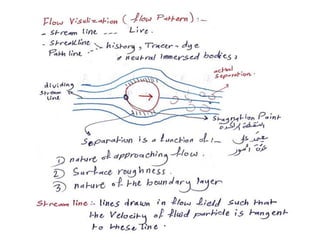 Flow Visulization ( flow Pattern) :-
- stream line --- Live.
- streakline
Path line
history, Tracer-dye
neutral immersed bodies.
actual
separation.
dividing
Stream
line
Stagnation Point
Separation is a function of :-
1 nature of approaching flow.
2 Surface roughness.
3 nature of the boundary layer
Stream line :- lines drawn in flow field such that
the velocity of fluid particle is tangent
to these line.